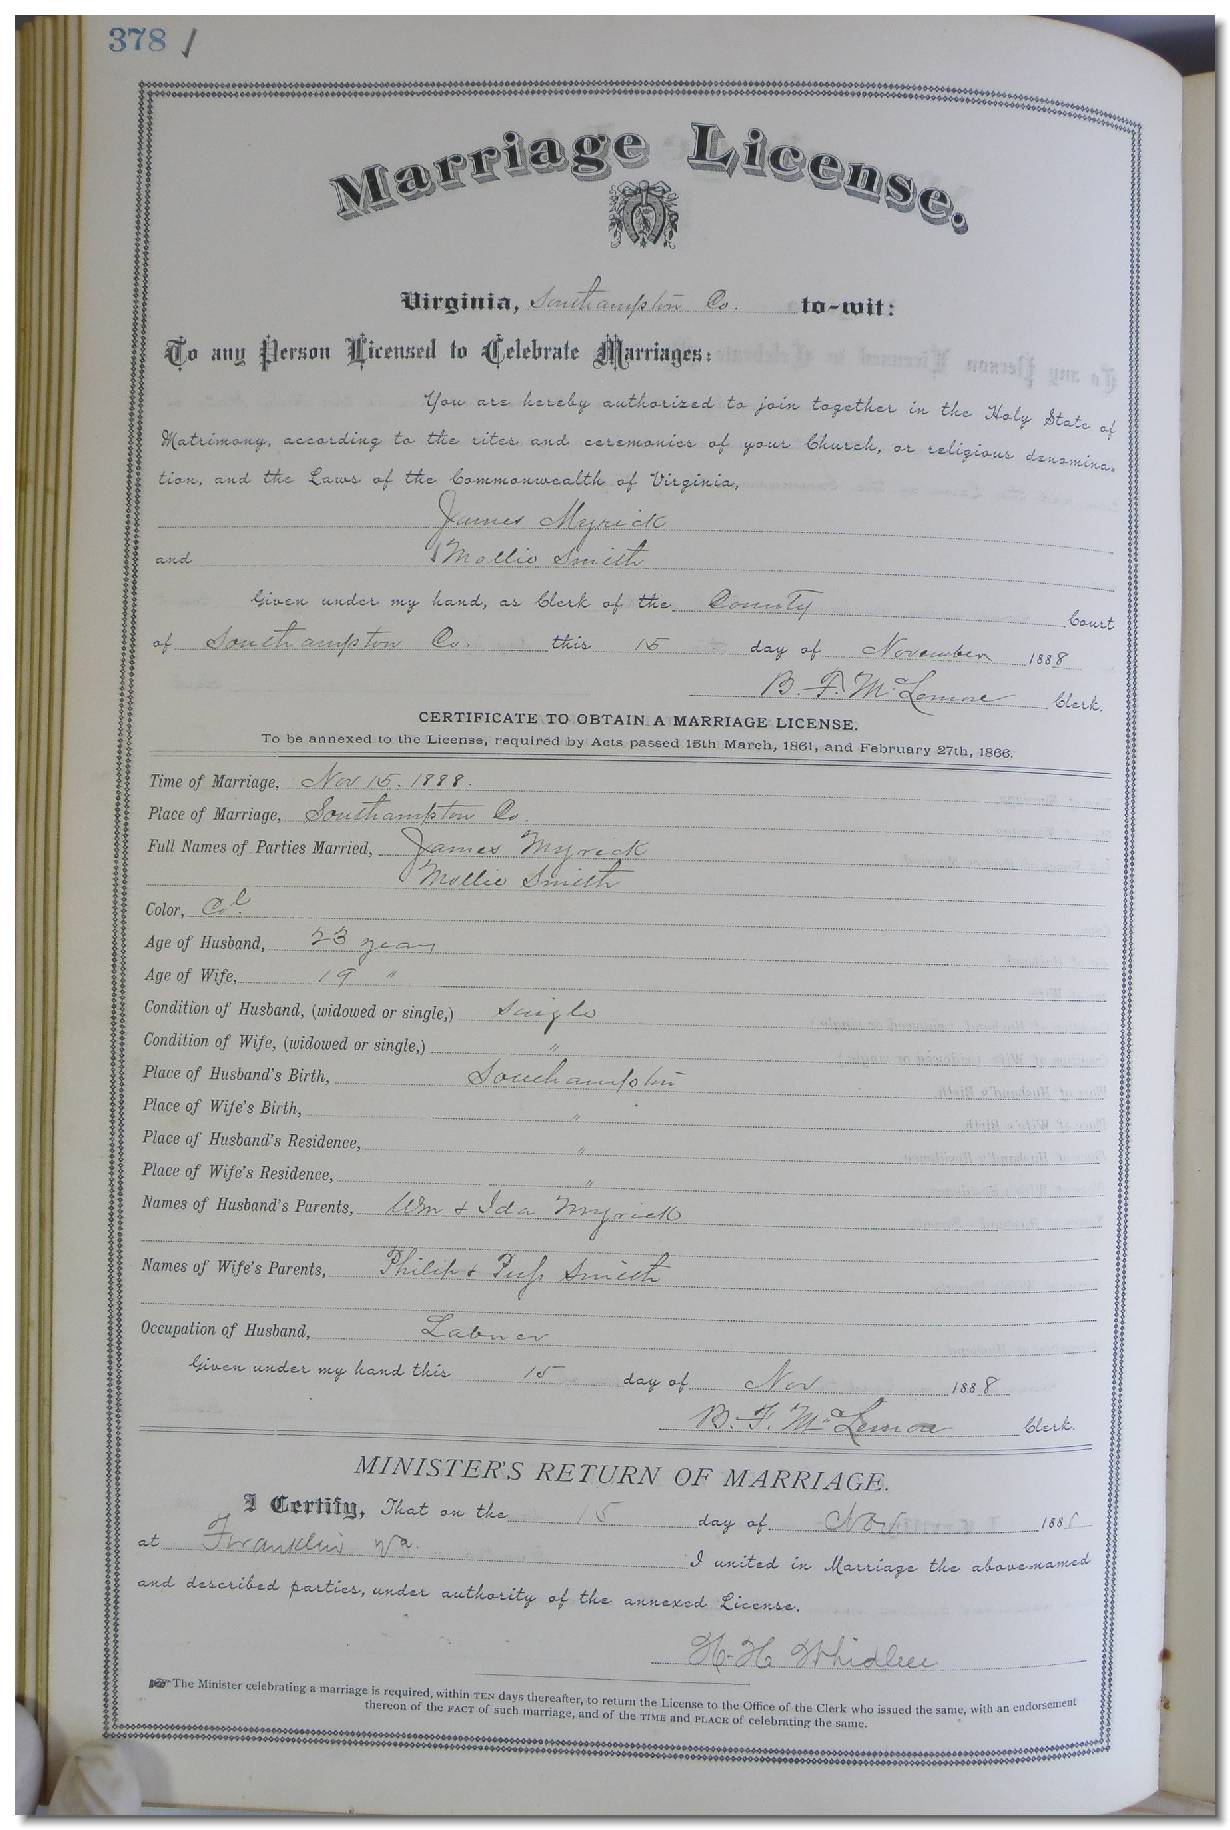 378 1
Marriage License.
Virginia, Southampton Co. to-wit:
To any Person Licensed to Celebrate Marriages:
You are hereby authorized to join together in the Holy State of
Matrimony, according to the rites and ceremonies of your Church, or religious denomina-
tion, and the Laws of the Commonwealth of Virginia,
James Myrick
and Mollie Smith
Given under my hand, as Clerk of the County Court
of Southampton Co. this 15 day of November 1888
B. F. McLemore Clerk.
CERTIFICATE TO OBTAIN A MARRIAGE LICENSE.
To be annexed to the License, required by Acts passed 15th March, 1861, and February 27th, 1866.
Time of Marriage, Nov 15. 1888.
Place of Marriage, Southampton Co.
Full Names of Parties Married, James Myrick
Mollie Smith
Color, Col.
Age of Husband, 23 years
Age of Wife, 19 "
Condition of Husband, (widowed or single,) single
Condition of Wife, (widowed or single,) "
Place of Husband's Birth, Southampton
Place of Wife's Birth, "
Place of Husband's Residence, "
Place of Wife's Residence, "
Names of Husband's Parents, Wm & Ida Myrick
Names of Wife's Parents, Philip & Smith
Occupation of Husband, Laborer
Given under my hand this 15 day of Nov 1888
B. F. McLemore Clerk.
MINISTER'S RETURN OF MARRIAGE.
I Certify, That on the 15 day of Nov 188
at Franklin Va. I united in Marriage the above-named
and described parties, under authority of the annexed License.
H. H.
☞ The Minister celebrating a marriage is required, within TEN days thereafter, to return the License to the Office of the Clerk who issued the same, with an endorsement
thereon of the FACT of such marriage, and of the TIME and PLACE of celebrating the same.